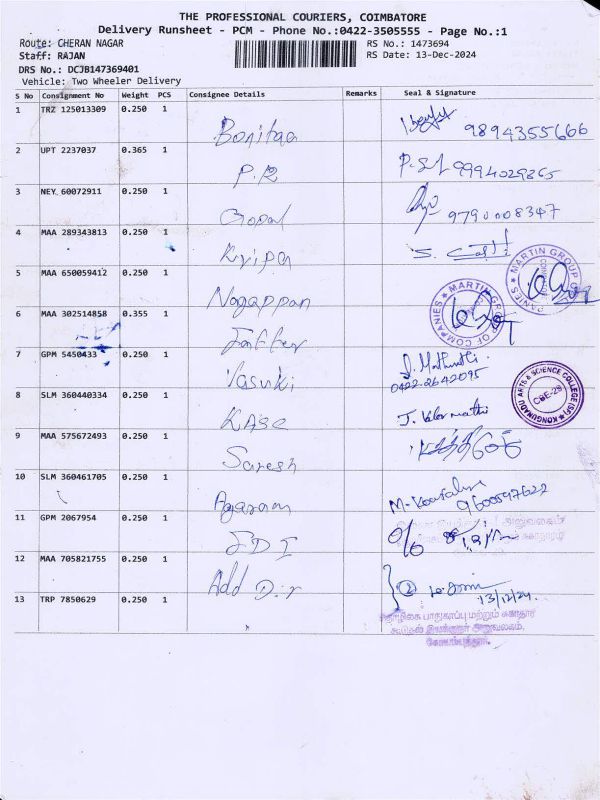 THE PROFESSIONAL COURIERS, COIMBATORE
Delivery Runsheet - PCM - Phone No.:0422-3505555 - Page No.:1
Route: CHERAN NAGAR
RS No.: 1473694
Staff: RAJAN
RS Date: 13-Dec-2024
DRS No.: DCJB147369401
Vehicle: Two Wheeler Delivery
S No Consignment No Weight PCS Consignee Details Remarks Seal & Signature
1 TRZ 125013309 0.250 1
Bonitaa 9894355666
2 UPT 2237037 0.365 1
P.R 9994029865
3 NEY 60072911 0.250 1
Gopal 9790008347
4 MAA 289343813 0.250 1
5 MAA 650059412 0.250 1
Nagappan
MARTIN GROUP OF COMPANIES
6 MAA 302514858 0.355 1
MARTIN GROUP OF COMPANIES
7 GPM 5450433 0.250 1
Vasuki
0422-2642095
8 SLM 360440334 0.250 1
KASC
KONGUNADU ARTS & SCIENCE COLLEGE
CBE-29
9 MAA 575672493 0.250 1
Saresh
10 SLM 360461705 0.250 1
Agaram 9600597622
11 GPM 2067954 0.250 1
12 MAA 705821755 0.250 1
Add Dir
13/12/24
13 TRP 7850629 0.250 1
பாதுகாப்பு மற்றும்